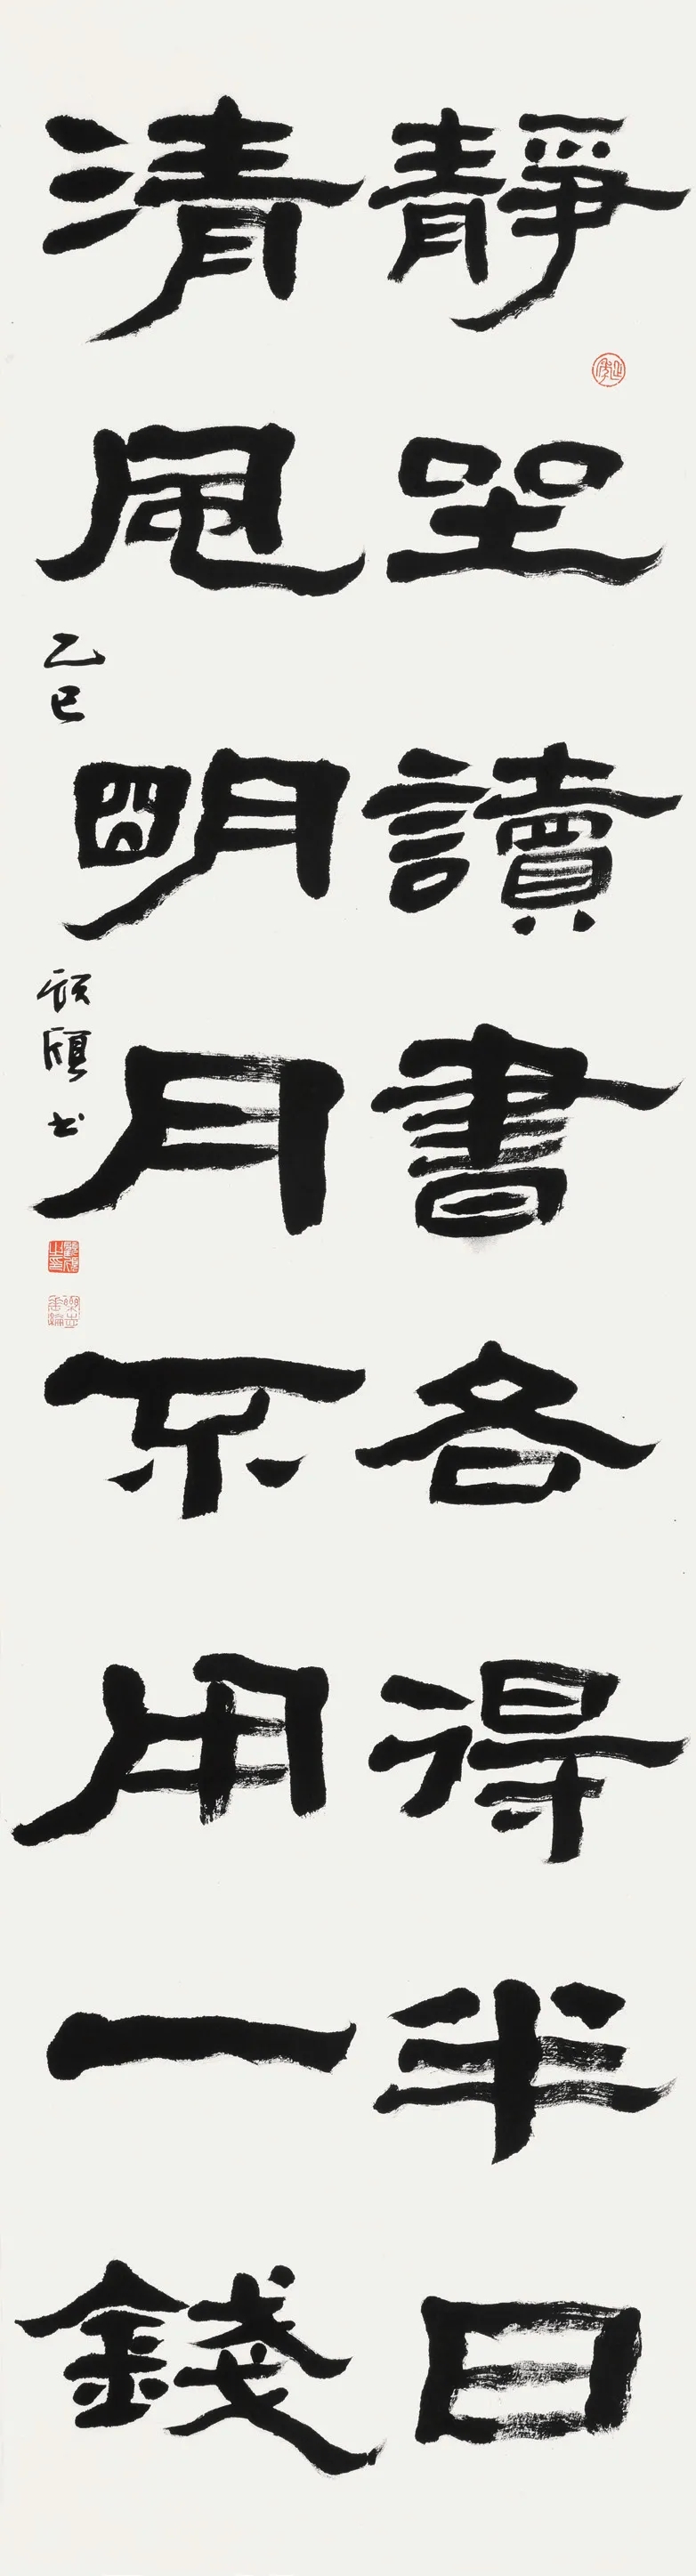 靜坐讀書各得半日
清風明月不用一錢
乙巳 顧頎书